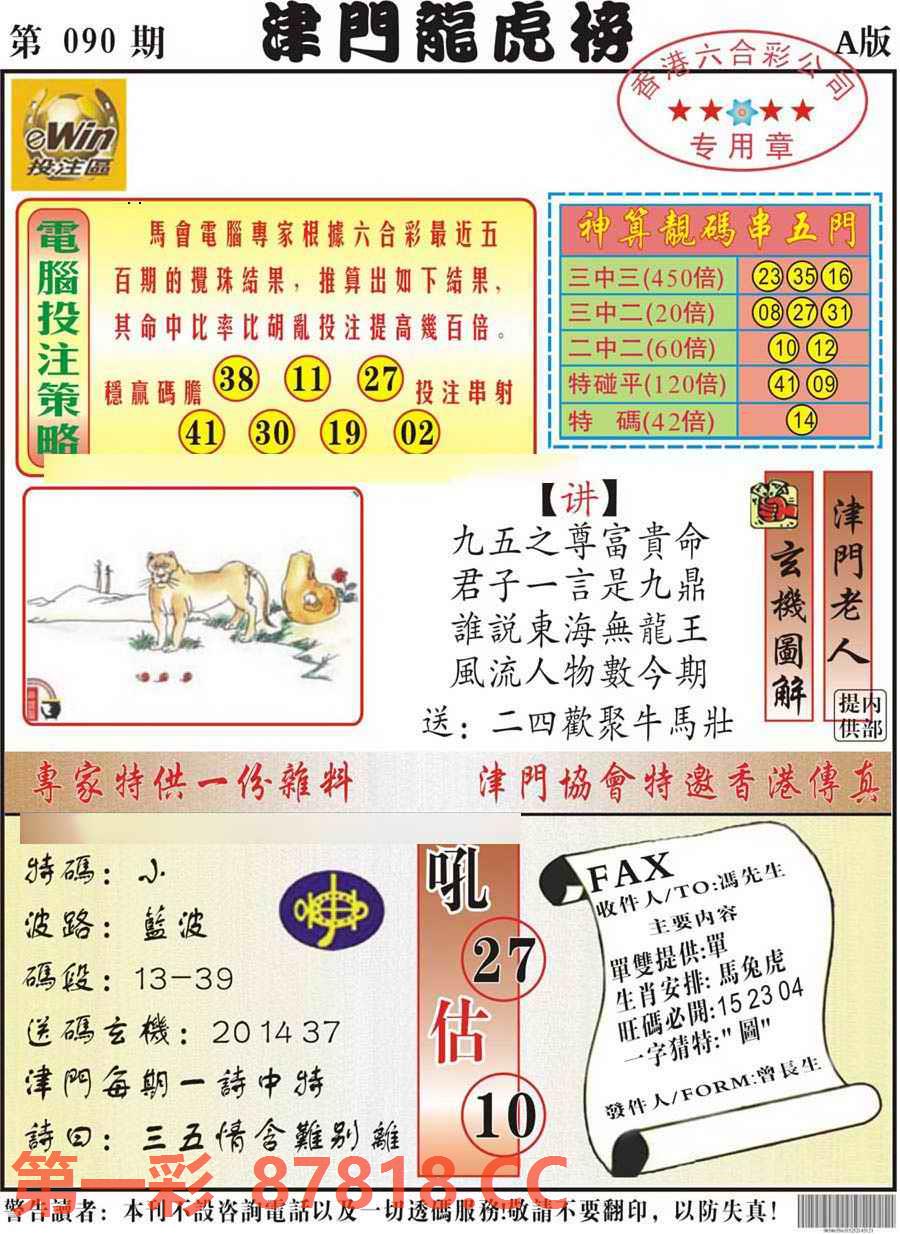 第 090 期
津門龍虎榜
A版
香港六合彩公司
专用章
eWin
投注區
電腦投注策略
馬會電腦專家根據六合彩最近五
百期的攪珠結果，推算出如下結果，
其命中比率比胡亂投注提高幾百倍。
穩贏碼膽 38 11 27 投注串射
41 30 19 02
神算靚碼串五門
三中三(450倍) 23 35 16
三中二(20倍) 08 27 31
二中二(60倍) 10 12
特碰平(120倍) 41 09
特 碼(42倍) 14
【讲】
九五之尊富貴命
君子一言是九鼎
誰説東海無龍王
風流人物數今期
送：二四歡聚牛馬壯
玄機圖解
津門老人
提供
内部
專家特供一份雜料
津門協會特邀香港傳真
特碼：小
波路：藍波
碼段：13-39
送碼玄機：20 14 37
津門每期一詩中特
詩曰：三五情含難别離
吼
27
估
10
FAX
收件人/TO:馮先生
主要内容
單雙提供:單
生肖安排: 馬兔虎
旺碼必開:15 23 04
一字猜特:"圖"
發件人/FORM:曾長生
第一彩 87818.CC
警告讀者：本刊不設咨詢電話以及一切透碼服務!敬請不要翻印，以防失真!